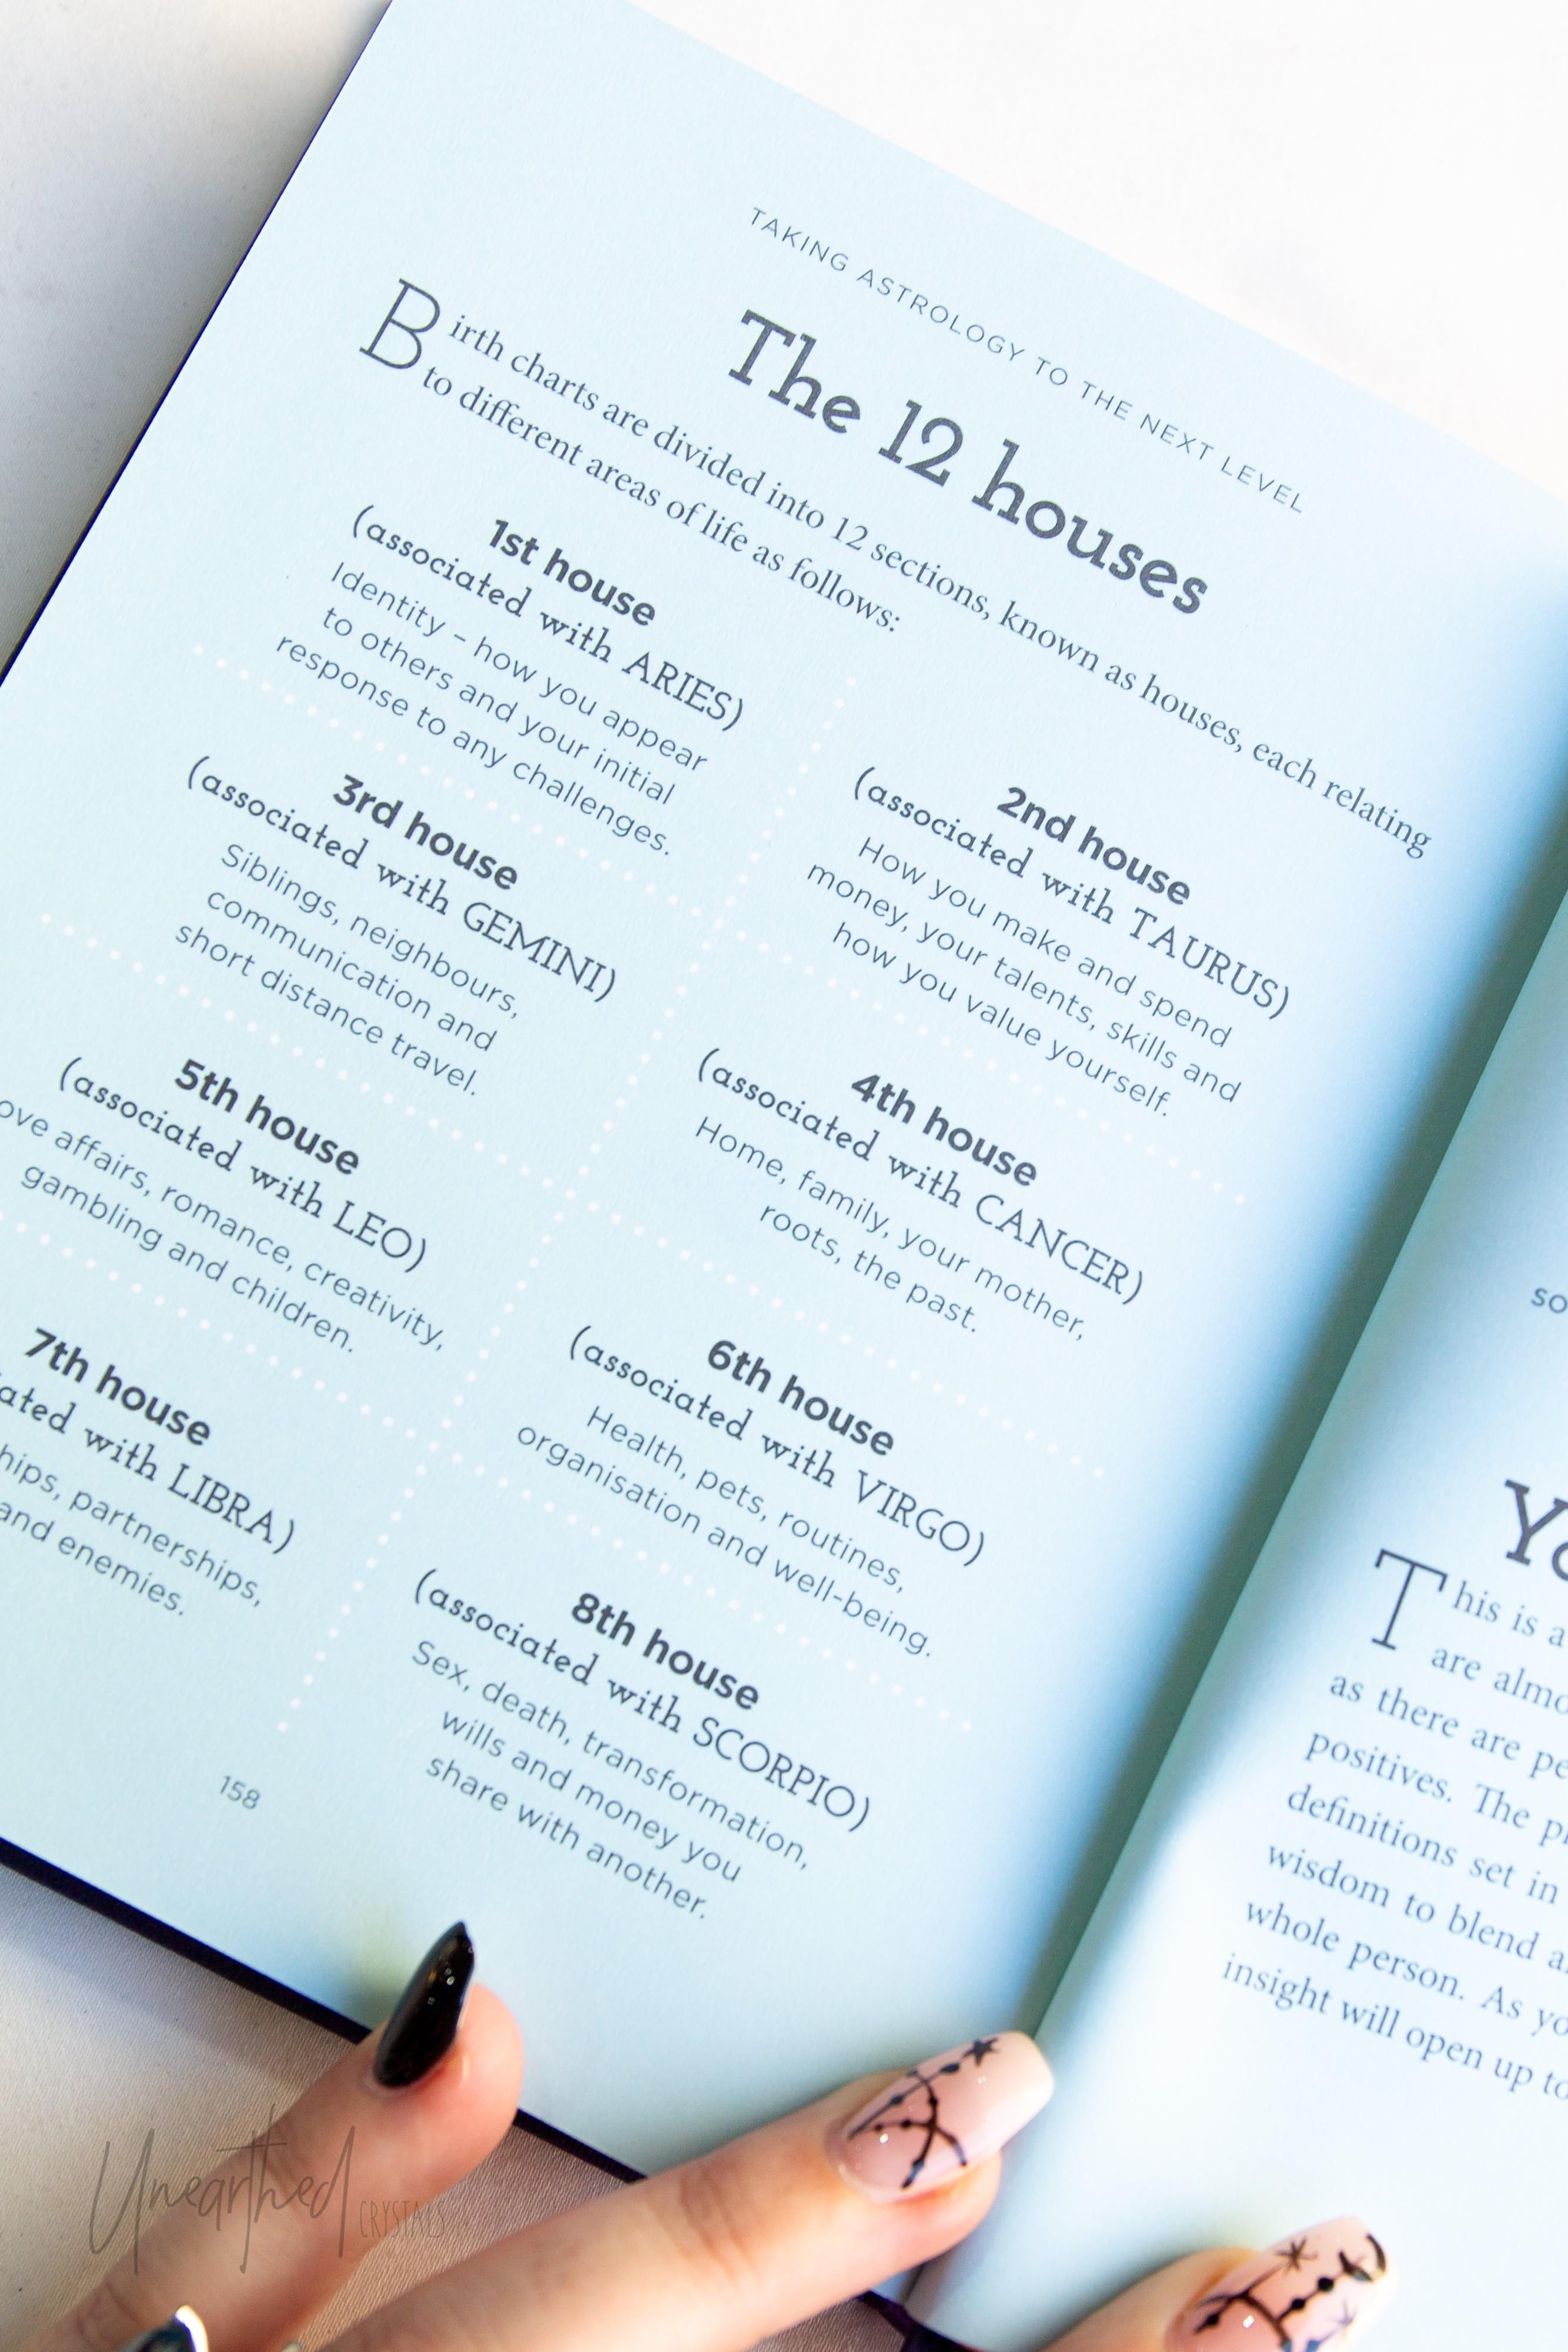 TAKING ASTROLOGY TO THE NEXT LEVEL
The 12 houses
Birth charts are divided into 12 sections, known as houses, each relating
to different areas of life as follows:
1st house
(associated with ARIES)
Identity – how you appear
to others and your initial
response to any challenges.
2nd house
(associated with TAURUS)
How you make and spend
money, your talents, skills and
how you value yourself.
3rd house
(associated with GEMINI)
Siblings, neighbours,
communication and
short distance travel.
4th house
(associated with CANCER)
Home, family, your mother,
roots, the past.
5th house
(associated with LEO)
ove affairs, romance, creativity,
gambling and children.
6th house
(associated with VIRGO)
Health, pets, routines,
organisation and well-being.
7th house
ated with LIBRA)
hips, partnerships,
and enemies.
8th house
(associated with SCORPIO)
Sex, death, transformation,
wills and money you
share with another.
158
so
Yo
This is a
are almo
as there are pe
positives. The p
definitions set in
wisdom to blend a
whole person. As yo
insight will open up to
Unearthed CRYSTALS